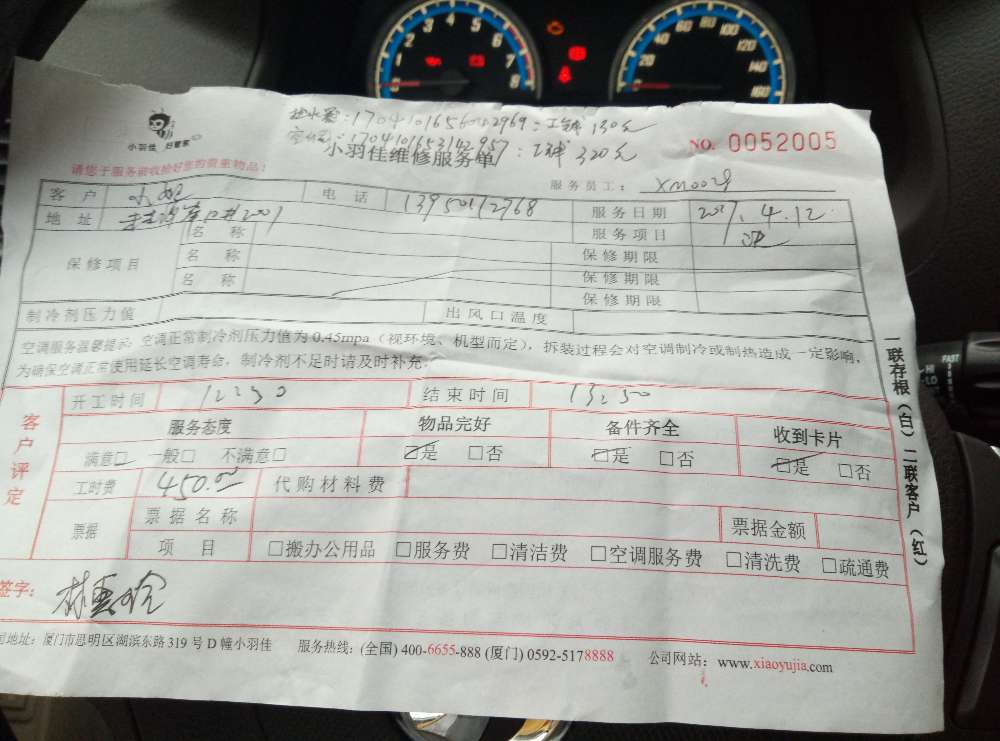 1704101656002969:工钱130元
1704101653142957:工钱320元
小羽佳 好管家
小羽佳维修服务单
NO. 0052005
请您于服务前收捡好您的贵重物品:
服务员工: XM0029
客户 小姐 电话 13950112768 服务日期 2017.4.12
地址 服务项目
保修项目 名称 保修期限
名称 保修期限
名称 保修期限
制冷剂压力值 出风口温度
空调服务温馨提示: 空调正常制冷剂压力值为0.45mpa(视环境、机型而定),拆装过程会对空调制冷或制热造成一定影响,
为确保空调正常使用延长空调寿命,制冷剂不足时请及时补充。
客户评定
开工时间 12:30 结束时间 13:50
服务态度 物品完好 备件齐全 收到卡片
满意□ 一般□ 不满意□ ☑是 □否 ☑是 □否 ☑是 □否
工时费 450.00 代购材料费
票据 票据名称 票据金额
项目 □搬办公用品 □服务费 □清洁费 □空调服务费 □清洗费 □疏通费
签字:
地址:厦门市思明区湖滨东路319号D幢小羽佳 服务热线:(全国)400-6655-888 (厦门)0592-5178888 公司网站:www.xiaoyujia.com
一联存根(白) 二联客户(红)
1 2 3 4 5 6 7 8
20 40 60 80 100 120 140 160
FAST
HI
LO